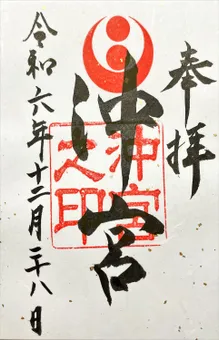 奉拝
沖宮
沖宮之印
令和六年十二月二十八日